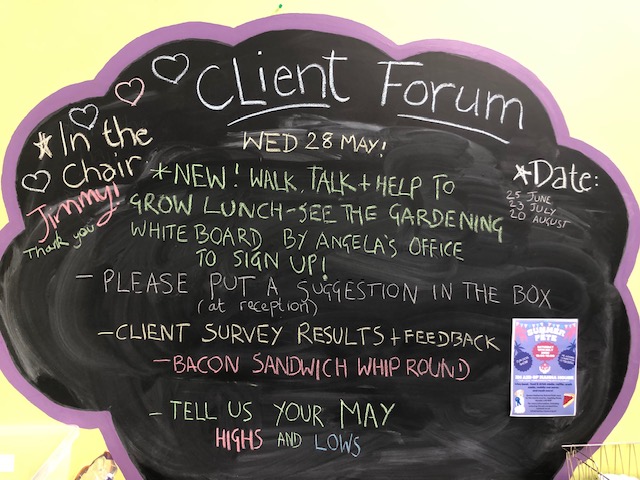 CLient Forum
WED 28 MAY!
*In the
Chair
Jimmy!
Thank you
*NEW! WALK, TALK + HELP TO
GROW LUNCH - SEE THE GARDENING
WHITEBOARD BY ANGELA'S OFFICE
TO SIGN UP!
- PLEASE PUT A SUGGESTION IN THE BOX
(at reception)
- CLIENT SURVEY RESULTS + FEEDBACK
- BACON SANDWICH WHIP ROUND
- TELL US YOUR MAY
HIGHS AND LOWS
*Date:
25 JUNE
23 JULY
20 AUGUST
SUMMER
FETE